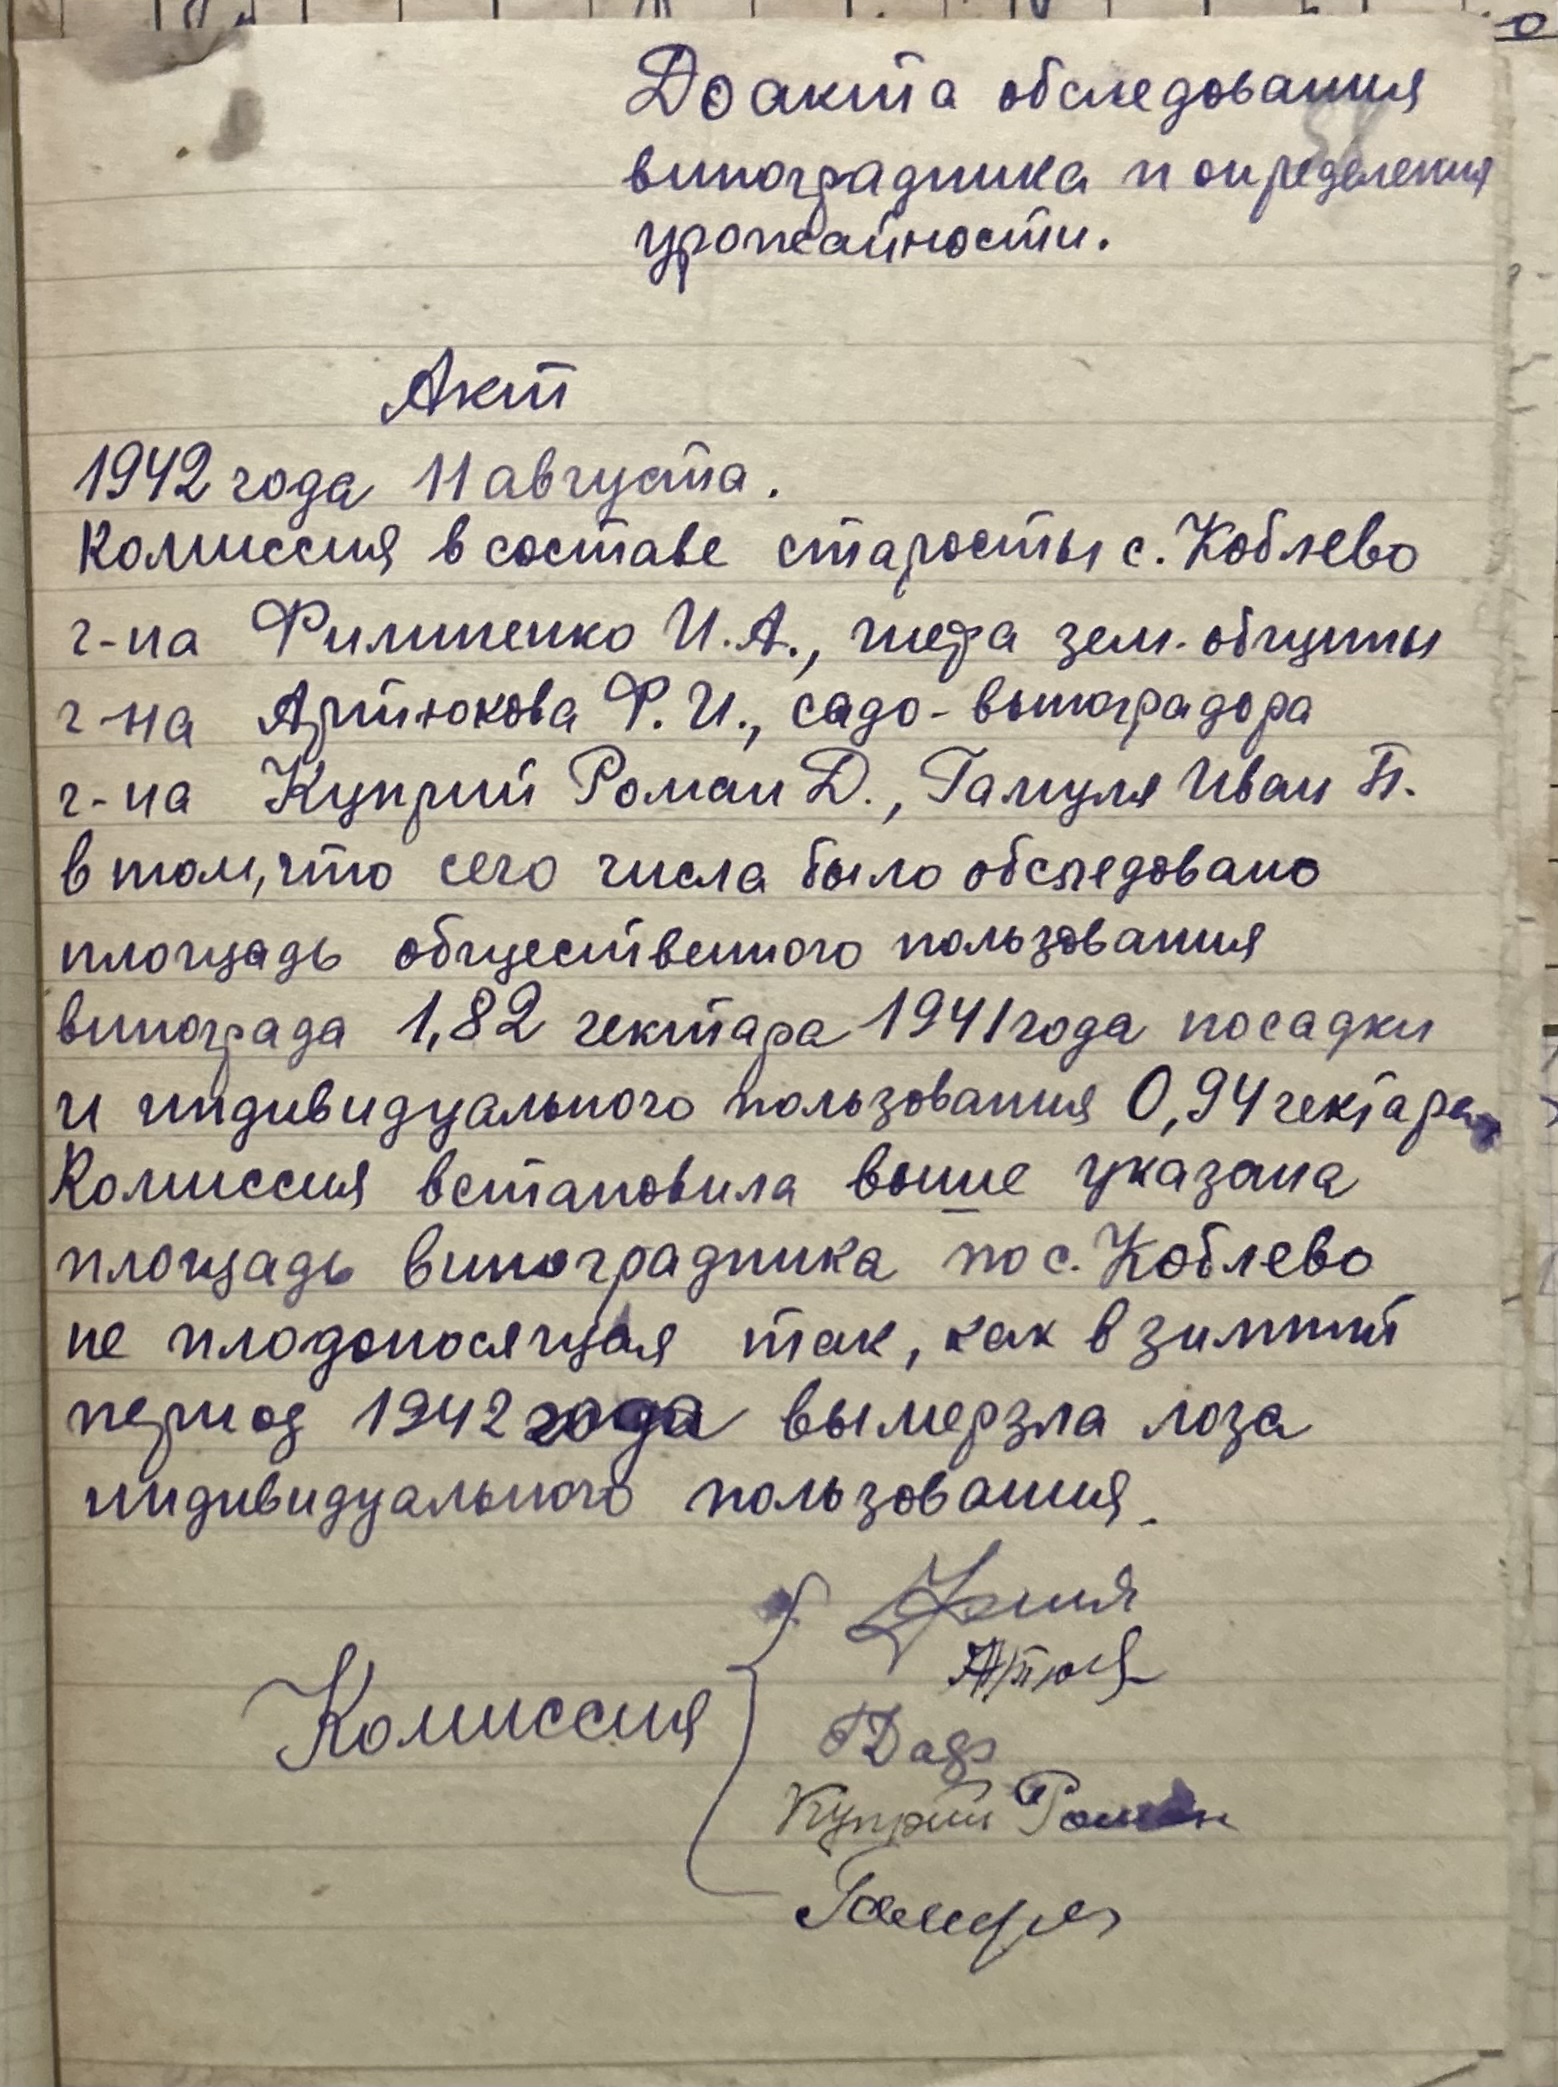 До акта обследования
виноградника и определения
урожайности.
Акт
1942 года 11 августа.
Комиссия в составе старосты с. Коблево
г-на Филипенко И.А., шефа зем. общины
г-на Артюкова Ф.И., садо-виноградора
г-на Куприй Роман Д., Гамуля Иван П.
в том, что сего числа было обследовано
площадь общественного пользования
винограда 1,82 гектара 1941 года посадки
и индивидуального пользования 0,94 гектара
Комиссия встановила выше указана
площадь виноградника по с. Коблево
не плодоносящая так, как в зимний
период 1942 года вымерзла лоза
индивидуального пользования.
Комиссия
Куприй Роман